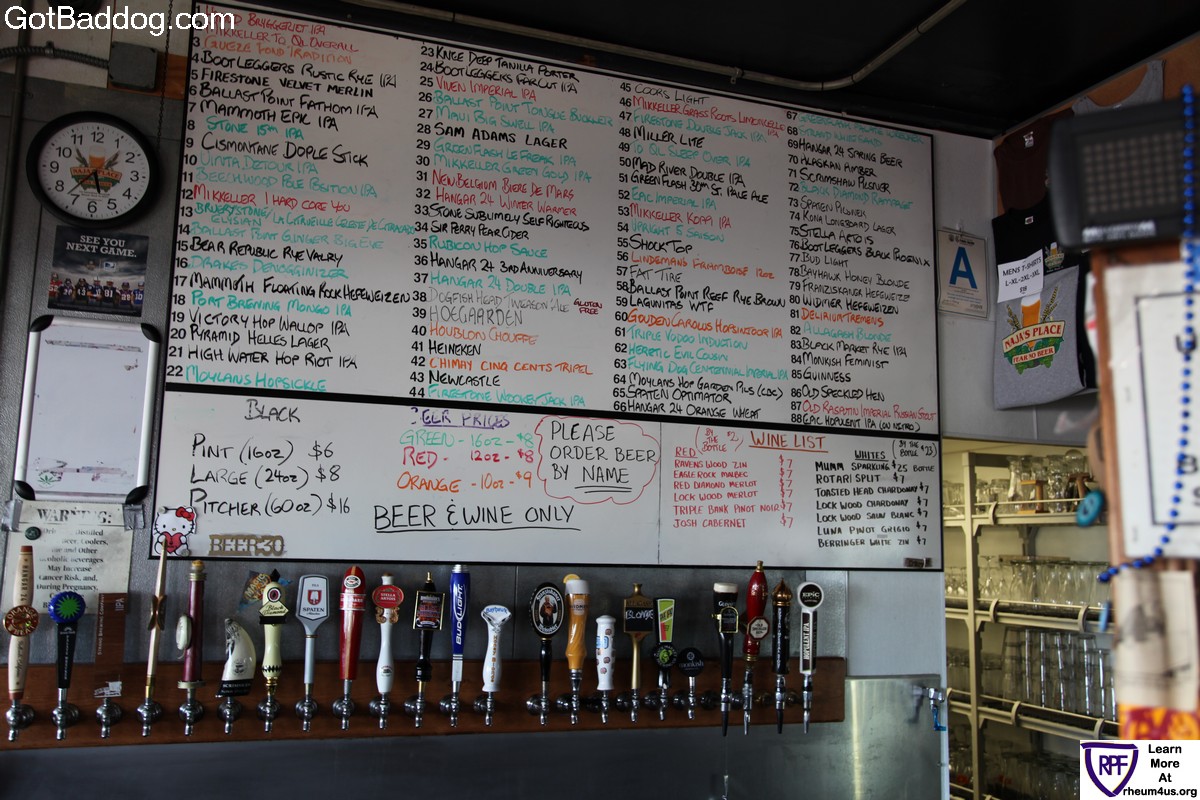 GotBaddog.com
MIKKELLER TO OL OVERALL
3 GUEZE FOND TRADITION
4 BOOTLEGGERS RUSTIC RYE IPA
5 FIRESTONE VELVET MERLIN
6 BALLAST POINT FATHOM IPA
7 MAMMOTH EPIC IPA
8 STONE 15th IPA
9 CISMONTANE DOPLE STICK
10 UINTA DETOUR IPA
11 BEECHWOOD POLE POSITION IPA
12 MIKKELLER I HARD CORE YOU
13
ELYSIAN
14 BALLAST POINT GINGER BIG EYE
15 BEAR REPUBLIC RYE VALRY
16 DRAKES DENOGGINIZER
17 MAMMOTH FLOATING ROCK HEFEWEIZEN
18 PORT BREWING MONGO IPA
19 VICTORY HOP WALLOP IPA
20 PYRAMID HELLES LAGER
21 HIGH WATER HOP RIOT IPA
22 MOYLANS HOPSICKLE
23 KNEE DEEP TANILLA PORTER
24 BOOTLEGGERS FAR CUT IPA
25 VIVEN IMPERIAL IPA
26 BALLAST POINT TONGUE BUCKLER
27 MAUI BIG SWELL IPA
28 SAM ADAMS LAGER
29 GREEN FLASH LE FREAK IPA
30 MIKKELLER GREEN GOLD IPA
31 NEW BELGIUM BIERE DE MARS
32 HANGAR 24 WINTER WARMER
33 STONE SUBLIMELY SELF RIGHTEOUS
34 SIR PERRY PEAR CIDER
35 RUBICON HOP SAUCE
36 HANGAR 24 3RD ANNIVERSARY
37 HANGAR 24 DOUBLE IPA
38 DOGFISH HEAD TWEASON'ALE GLUTEN FREE
39 HOEGAARDEN
40 HOUBLON CHOUFFE
41 HEINEKEN
42 CHIMAY CINQ CENTS TRIPEL
43 NEWCASTLE
44 FIRESTONE WOOKEY JACK IPA
45 COORS LIGHT
46 MIKKELLER GRASS ROOTS LIMONCELLO
47 FIRESTONE DOUBLE JACK IPA
48 MILLER LITE
49 TO OL SLEEP OVER IPA
50 MAD RIVER DOUBLE IPA
51 GREEN FLASH 30th ST. PALE ALE
52 EPIC IMPERIAL IPA
53 MIKKELLER KOPPI IPA
54 UPRIGHT 5 SAISON
55 SHOCK TOP
56 LINDEMANS FRAMBOISE 12oz
57 FAT TIRE
58 BALLAST POINT REEF RYE BROWN
59 LAGUNITAS WTF
60 GOUDEN CAROLUS HOPSINJOOR IPA
61 TRIPLE VODOO INDUCTION
62 HERETIC EVIL COUSIN
63 FLYING DOG CENTENNIAL IMPERIAL IPA
64 MOYLANS HOP GARDEN PILS (CBC)
65 SPATEN OPTIMATOR
66 HANGAR 24 ORANGE WHEAT
67
68
69 HANGAR 24 SPRING BEER
70 ALASKAN AMBER
71 SCRIMSHAW PILSNER
72 BLACK DIAMOND RAMPAGE
73 SPATEN PILSNER
74 KONA LONGBOARD LAGER
75 STELLA ARTOIS
76 BOOTLEGGERS BLACK PHOENIX
77 BUD LIGHT
78 BAYHAWK HONEY BLONDE
79 FRANZISKANER HEFEWEIZE
80 WIDMER HEFEWEIZEN
81 DELIRIUM TREMENS
82 ALLAGASH BLONDE
83 BLACK MARKET RYE IPA
84 MONKISH FEMINIST
85 GUINNESS
86 OLD SPECKLED HEN
87 OLD RASPUTIN IMPERIAL RUSSIAN STOUT
88 EPIC HOPULENT IPA (ON NITRO)
BLACK
PINT (16oz) $6
LARGE (24oz) $8
PITCHER (60oz) $16
BEER PRICES
GREEN - 16oz - $8
RED - 12oz - $8
ORANGE - 10oz - $9
BEER & WINE ONLY
PLEASE
ORDER BEER
BY NAME
WINE LIST
RED (BY THE BOTTLE $21)
RAVENS WOOD ZIN $7
EAGLE ROCK MALBEC $7
RED DIAMOND MERLOT $7
LOCK WOOD MERLOT $7
TRIPLE BANK PINOT NOIR $7
JOSH CABERNET $7
WHITES (BY THE BOTTLE $23)
MUMM SPARKLING $25 BOTTLE
ROTARI SPLIT $7
TOASTED HEAD CHARDONAY $7
LOCK WOOD CHARDONAY $7
LOCK WOOD SAUV BLANC $7
LUNA PINOT GRIGIO $7
BERRINGER WHITE ZIN $7
SEE YOU
NEXT GAME.
NAJA'S PLACE
WARNING:
Distilled
Beer, Coolers,
and Other
Alcoholic Beverages
May Increase
Cancer Risk, and,
During Pregnancy,
BEER 30
A
MEN'S T-SHIRTS
L-XL-2XL-3XL
NAJA'S PLACE
YEAR 30 BEER
SPATEN
STELLA ARTOIS
BUD LIGHT
BLONDE
GUINNESS
monkish
EPIC
RPF
Learn
More
At
rheum4us.org